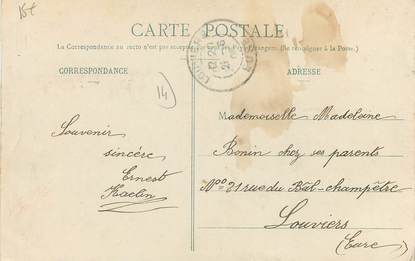 15€
CARTE POSTALE
La Correspondance au recto n'est pas acceptée
(Se renseigner à la Poste.)
CORRESPONDANCE
ADRESSE
14
Souvenir
sincère
Ernest
Kaelin
Mademoiselle Madeleine
Bonin chez ses parents
N°° 21 rue du Bal-champêtre
Louviers
(Eure)